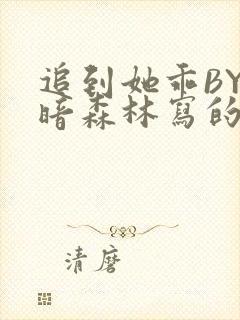 追到她乖BY
暗森林寫的
清磨